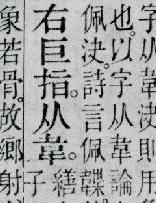 字从韋決則用
也。以字从韋論
佩決。詩言佩韘
右巨指。从韋。
繕
子
象若骨。故鄉射